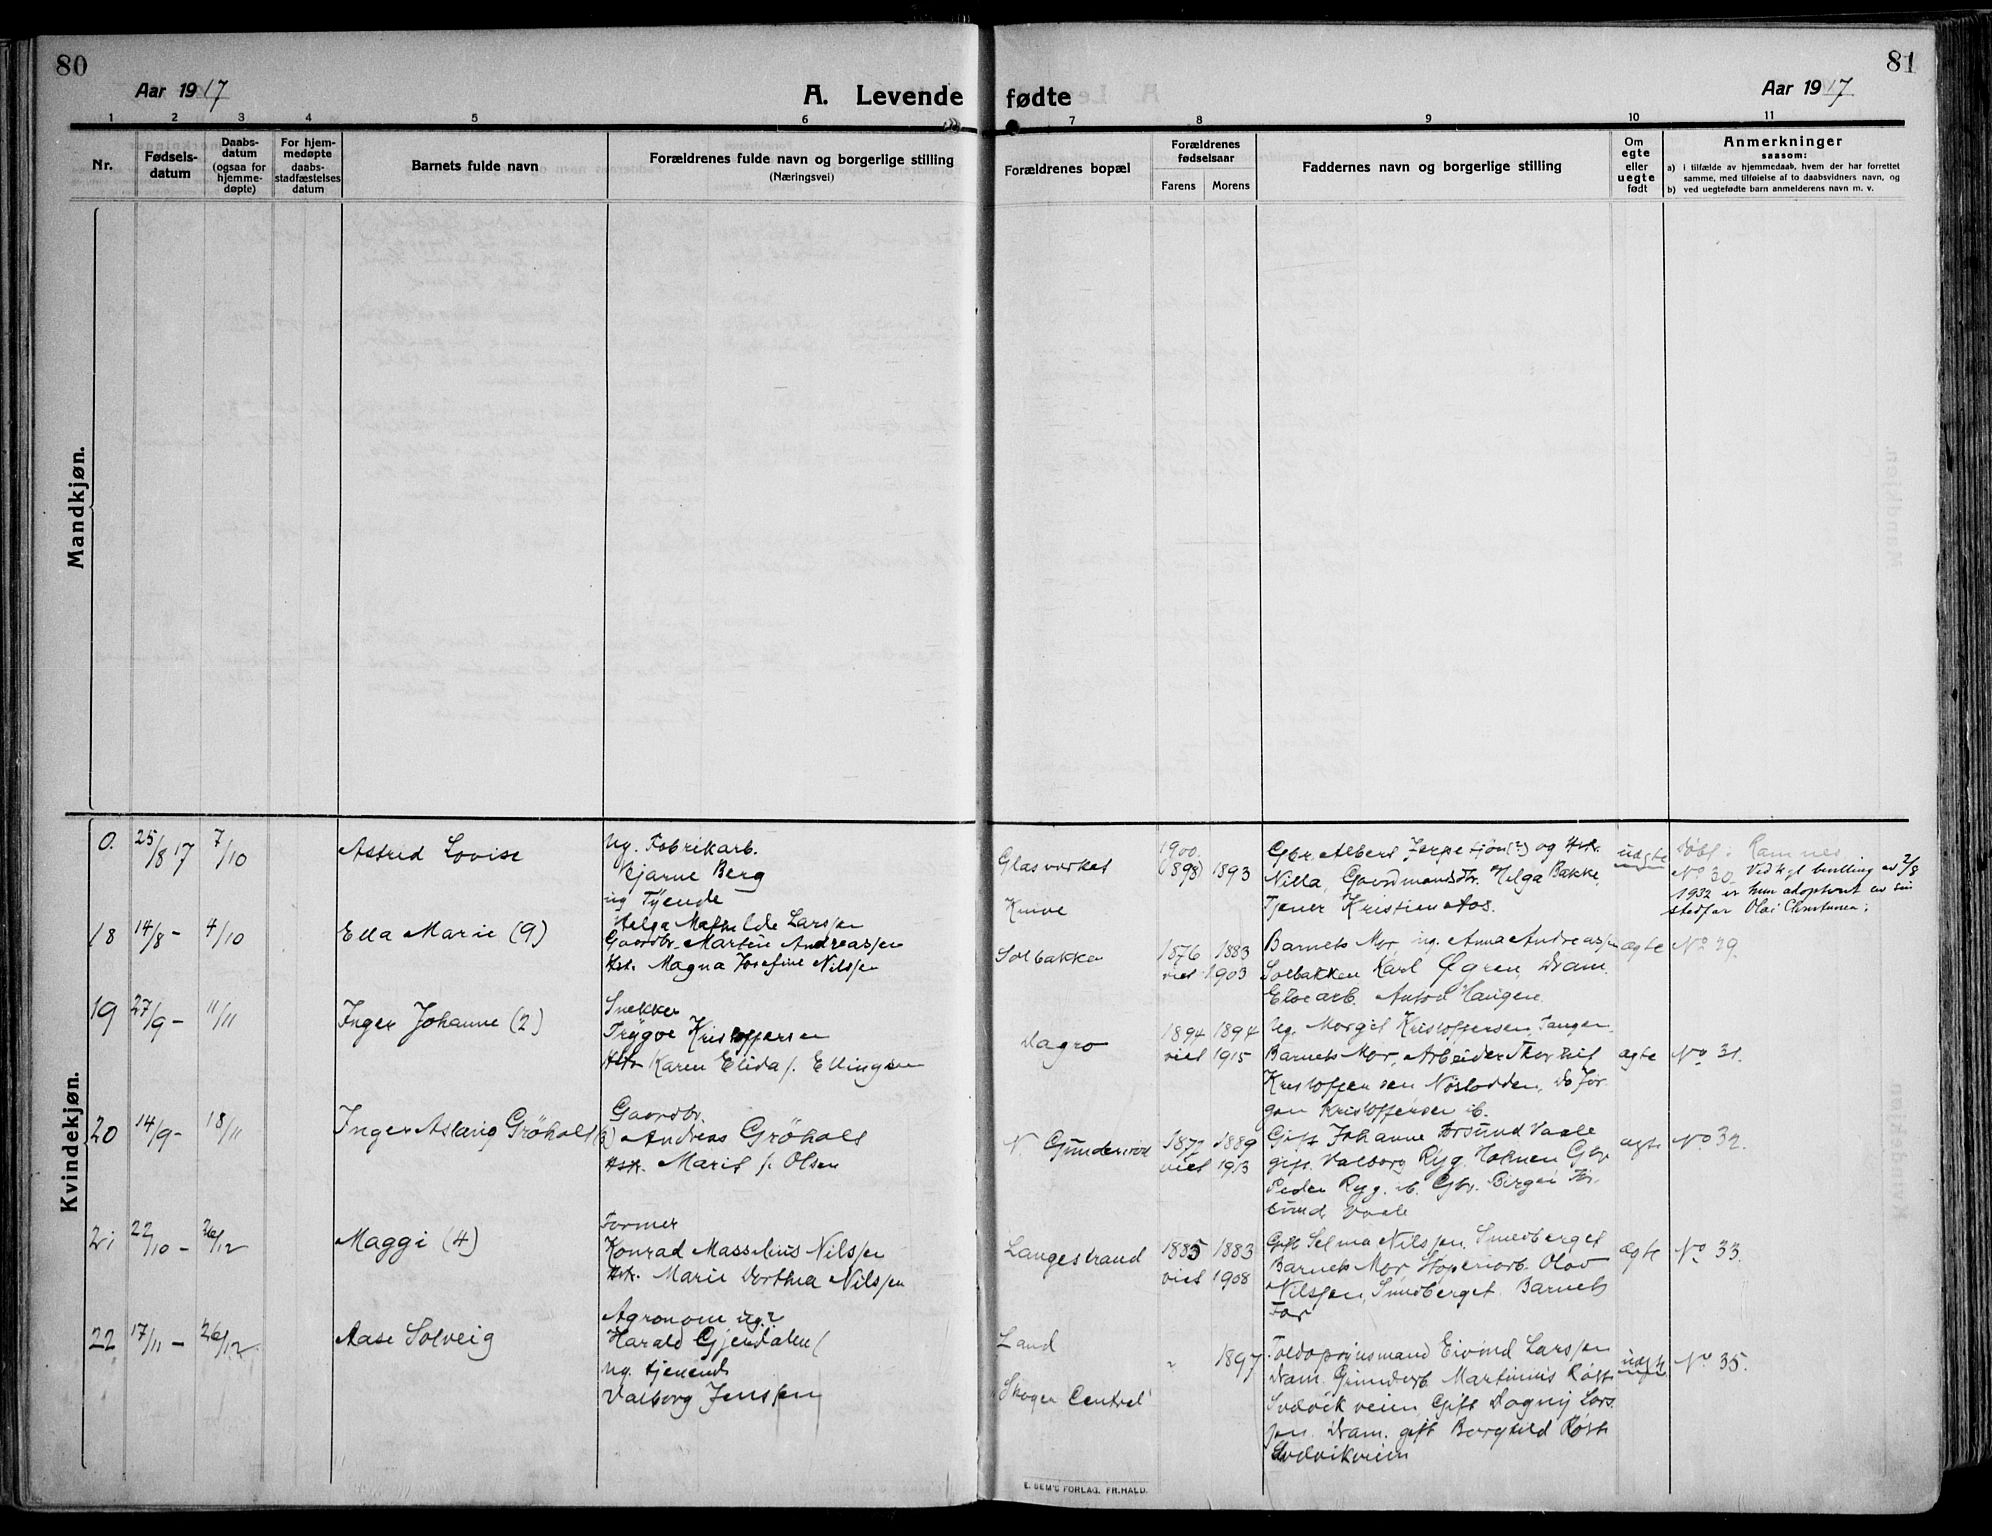 80
81
Aar 1917
A. Levende fødte
Aar 1917
1 2 3 4 5 6 7 8 9 10 11
Nr.
Fødsels-
datum
Daabs-
datum
(ogsaa for
hjemme-
døpte)
For hjem-
medøpte
daabs-
stadfæstelses
datum
Barnets fulde navn
Forældrenes fulde navn og borgerlige stilling
(Næringsvei)
Forældrenes bopæl
Forældrenes
fødselsaar
Farens Morens
Faddernes navn og borgerlige stilling
Om
egte
eller
uegte
født
Anmerkninger
saasom:
a) i tilfælde av hjemmedaab, hvem der har forrettet
samme, med tilføielse af to daabsvidners navn, og
b) ved uegtefødte barn anmelderens navn m. v.
Mandkjøn.
Kvindekjøn.
0. 25/8 17 7/10 Astrid Lovise
Ug. Fabrikarb.
Bjarne Berg
ug Tjende
Helga Mathilde Larssen
Glasverket
Knive
1900.
(1898) 1893
Gbr. Albert Jerpetjøn(?) og Hsk.
Nilla, Gaardmandsdtr. Helga Bakke,
Tjener Kristian Aas.
uægte
døbt: Ramnes
No 30 Ved kgl bevilling av 2/8
1932 er hun adoptert av sin
stedfar Olai Christensen;
18 14/8 - 4/10 Ella Marie (9)
Gaardbr. Martin Andreassen
Hst. Magna Josefine Nilssen
Solbakken
1876 1883
viet 1903
Barnets Mor, ug. Anna Andreassen
Solbakken Karl Øgren, Dram.
Elvearb. Anton Haugen.
ægte No 29.
19 27/9 - 11/11 Inger Johanne (2)
Snekker
Trygve Kristoffersen
Hst. Karen Elida f. Ellingsen
Dagro
1894 1894
viet 1915
Ug. Margit Kristoffersen, Tangen
Barnets Mor, Arbeider Thorleif
Kristoffersen Nøstodden, Do Jør-
gen Kristoffersen ib.
ægte No 31.
20 14/9 - 18/11 Inger Aslaug Gröholt
Gaardbr.
Andreas Gröholt
Hst. Marit f. Olsen
N. Gunderud
1877 1889
viet 1913
Gift Johanne Forsund Vaale
gift. Valborg Ryg. Haknen Gbr
Peder Ryg. ib. Gbr. Birger For-
sund Vaale
ægte No 32.
21 22/10 - 26/12 Maggi (4)
Former
Konrad Masselius Nilssen
Hst. Marie Dorthea Nilssen
Langestrand
1885 1883
viet 1908
Gift Selma Nilssen, Smedberget
Barnets Mor, Støperiarb. Olav
Nilssen, Smedberget. Barnets
Far
ægte No 33.
22 17/11 - 26/12 Aase Solveig
Agronom ug.?
Harald Gjerdalen
ug. tjenende
Valborg Jenssen
Land
Skoger Central
" 1897
Toldopsynsmand Eivind Larssen
Dram. Grunderb. Martinius Røst
Svelvikveien Gift Dagny Lars-
sen. Dram. gift Borghild Røst
Svelvikveien
uægte No 35.
E. SEM'S FORLAG. FR.HALD.